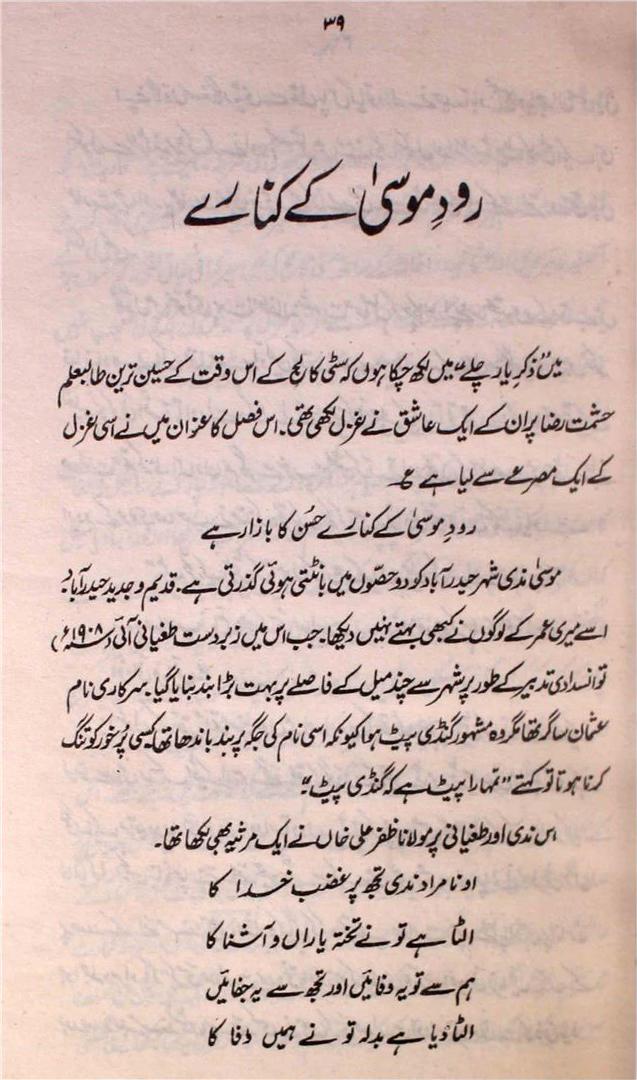 ۳۹
رودِ موسیٰ کے کنارے
میں "ذکرِ یار چلے" میں لکھ چکا ہوں کہ سٹی کالج کے اس وقت کے حسین ترین طالبعلم
حشمت رضا پر ان کے ایک عاشق نے غزل لکھی تھی۔ اس فصل کا عنوان میں نے اسی غزل
کے ایک مصرعے سے لیا ہے ع۔
رودِ موسیٰ کے کنارے حُسن کا بازار ہے
موسیٰ ندی شہر حیدرآباد کو دو حصّوں میں بانٹتی ہوئی گذرتی ہے۔ قدیم و جدید حیدرآباد۔
اسے میری عمر کے لوگوں نے کبھی بہتے نہیں دیکھا۔ جب اس میں زبردست طغیانی آئی (سنہ ۱۹۰۸ء)
تو انسدادی تدبیر کے طور پر شہر سے چند میل کے فاصلے پر بہت بڑا بند بنایا گیا۔ سرکاری نام
عثمان ساگر تھا مگر وہ مشہور گنڈی پیٹ ہوا کیونکہ اسی نام کی جگہ پر بند باندھا تھا کسی پُرخور کو تنگ
کرنا ہوتا تو کہتے "تمہارا پیٹ ہے کہ گنڈی پیٹ"۔
اس ندی اور طغیانی پر مولانا ظفر علی خاں نے ایک مرثیہ بھی لکھا تھا۔
او نامراد ندی تجھ پر غضب خدا کا
الٹا ہے تو نے تختہ یاراں و آشنا کا
ہم سے تو یہ وفائیں اور تجھ سے یہ جفائیں
الٹا دیا ہے بدلہ تو نے ہمیں وفا کا